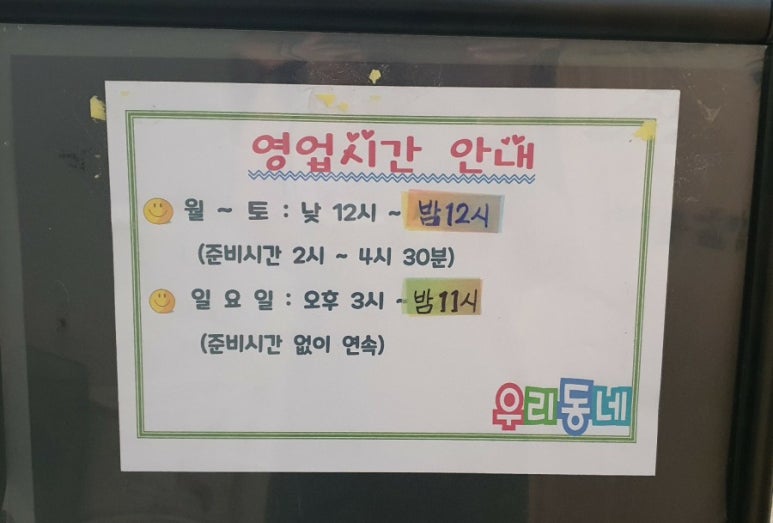 영업시간 안내
월 ~ 토 : 낮 12시 ~ 밤 12시
(준비시간 2시 ~ 4시 30분)
일 요 일 : 오후 3시 ~ 밤 11시
(준비시간 없이 연속)
우리동네